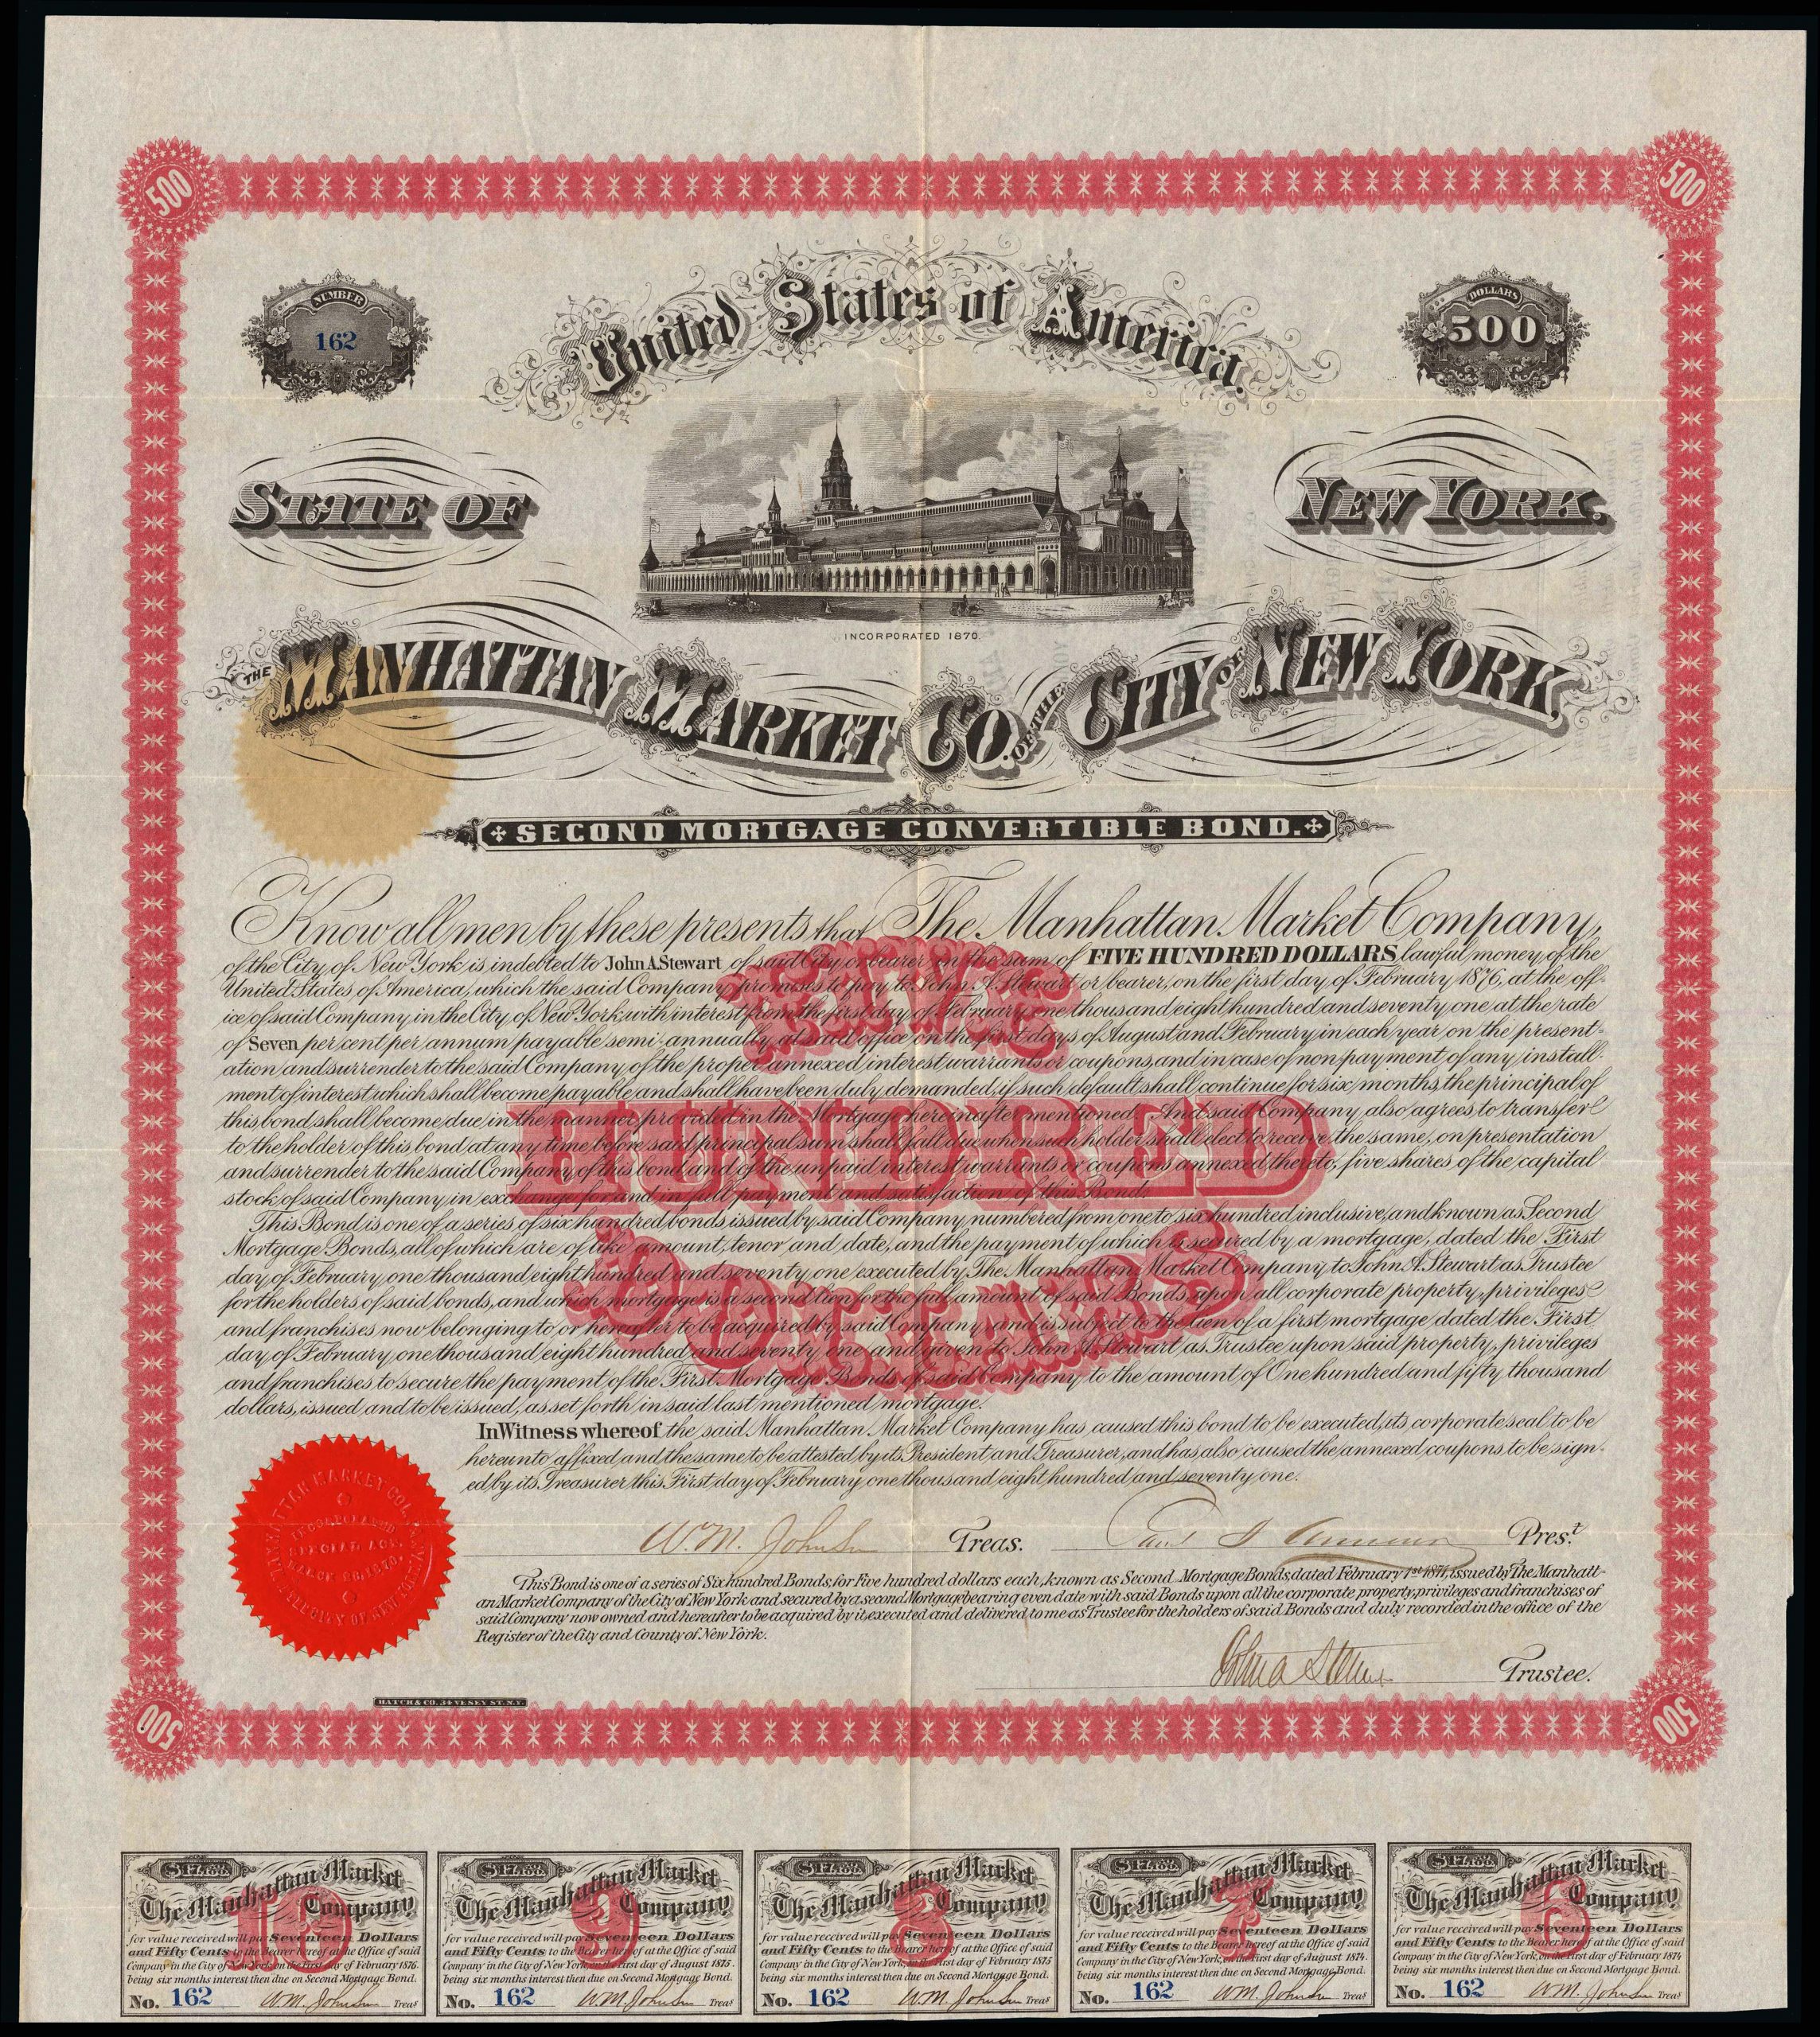 500
500
NUMBER
162
United States of America.
DOLLARS
500
STATE OF
NEW YORK.
INCORPORATED 1870.
THE MANHATTAN MARKET CO. OF THE CITY OF NEW YORK,
SECOND MORTGAGE CONVERTIBLE BOND.
FIVE
HUNDRED
DOLLARS
Know all men by these presents that The Manhattan Market Company,
of the City of New York is indebted to John A. Stewart of said City or bearer in the sum of FIVE HUNDRED DOLLARS, lawful money of the
United States of America, which the said Company promises to pay to John A. Stewart or bearer, on the first day of February 1876, at the off-
ice of said Company in the City of New York, with interest from the first day of February one thousand eight hundred and seventy one at the rate
of Seven per cent per annum payable semi-annually at said office on the first days of August and February in each year on the present-
ation and surrender to the said Company of the proper annexed interest warrants or coupons, and in case of non payment of any install-
ment of interest which shall become payable and shall have been duly demanded, if such default shall continue for six months, the principal of
this bond shall become due in the manner provided in the Mortgage hereinafter mentioned. And said Company also agrees to transfer
to the holder of this bond at any time before said principal sum shall fall due when such holder shall elect to receive the same, on presentation
and surrender to the said Company of this bond and of the unpaid interest warrants or coupons annexed thereto, five shares of the capital
stock of said Company in exchange for and in full payment and satisfaction of this Bond.
This Bond is one of a series of six hundred bonds issued by said Company numbered from one to six hundred inclusive, and known as Second
Mortgage Bonds, all of which are of like amount, tenor and date, and the payment of which is secured by a mortgage, dated the First
day of February, one thousand eight hundred and seventy one executed by The Manhattan Market Company to John A. Stewart as Trustee
for the holders of said bonds, and which mortgage is a second lien for the full amount of said Bonds upon all corporate property, privileges
and franchises now belonging to or hereafter to be acquired by said Company and is subject to the lien of a first mortgage dated the First
day of February one thousand eight hundred and seventy one and given to John A. Stewart as Trustee upon said property, privileges
and franchises to secure the payment of the First Mortgage Bonds of said Company to the amount of One hundred and fifty thousand
dollars, issued and to be issued, as set forth in said last mentioned mortgage.
In Witness whereof the said Manhattan Market Company has caused this bond to be executed, its corporate seal to be
hereunto affixed and the same to be attested by its President and Treasurer, and has also caused the annexed coupons to be sign-
ed by its Treasurer this First day of February one thousand eight hundred and seventy one.
W.M. Johnson Treas. Prest.
This Bond is one of a series of Six hundred Bonds, for Five hundred dollars each, known as Second Mortgage Bonds, dated February 1st 1871, issued by The Manhatt-
an Market Company of the City of New York and secured by a second Mortgage bearing even date with said Bonds upon all the corporate property, privileges and franchises of
said Company now owned and hereafter to be acquired by it, executed and delivered to me as Trustee for the holders of said Bonds and duly recorded in the office of the
Register of the City and County of New York.
John A Stewart Trustee.
MANHATTAN MARKET COMPANY
INCORPORATED
SPECIAL ACT,
MARCH 28, 1870,
CITY OF NEW YORK
HATCH & CO. 34 VESEY ST. N.Y.
500
500
$17.50.
The Manhattan Market Company
10
for value received will pay Seventeen Dollars
and Fifty Cents to the Bearer hereof at the Office of said
Company in the City of New York, on the First day of February 1876.
being six months interest then due on Second Mortgage Bond.
No. 162 W.M. Johnson Treas
$17.50.
The Manhattan Market Company
9
for value received will pay Seventeen Dollars
and Fifty Cents to the Bearer hereof at the Office of said
Company in the City of New York, on the First day of August 1875.
being six months interest then due on Second Mortgage Bond.
No. 162 W.M. Johnson Treas
$17.50.
The Manhattan Market Company
8
for value received will pay Seventeen Dollars
and Fifty Cents to the Bearer hereof at the Office of said
Company in the City of New York, on the First day of February 1875
being six months interest then due on Second Mortgage Bond.
No. 162 W.M. Johnson Treas
$17.50.
The Manhattan Market Company
7
for value received will pay Seventeen Dollars
and Fifty Cents to the Bearer hereof at the Office of said
Company in the City of New York, on the First day of August 1874.
being six months interest then due on Second Mortgage Bond.
No. 162 W.M. Johnson Treas
$17.50.
The Manhattan Market Company
6
for value received will pay Seventeen Dollars
and Fifty Cents to the Bearer hereof at the Office of said
Company in the City of New York, on the First day of February 1874
being six months interest then due on Second Mortgage Bond.
No. 162 W.M. Johnson Treas